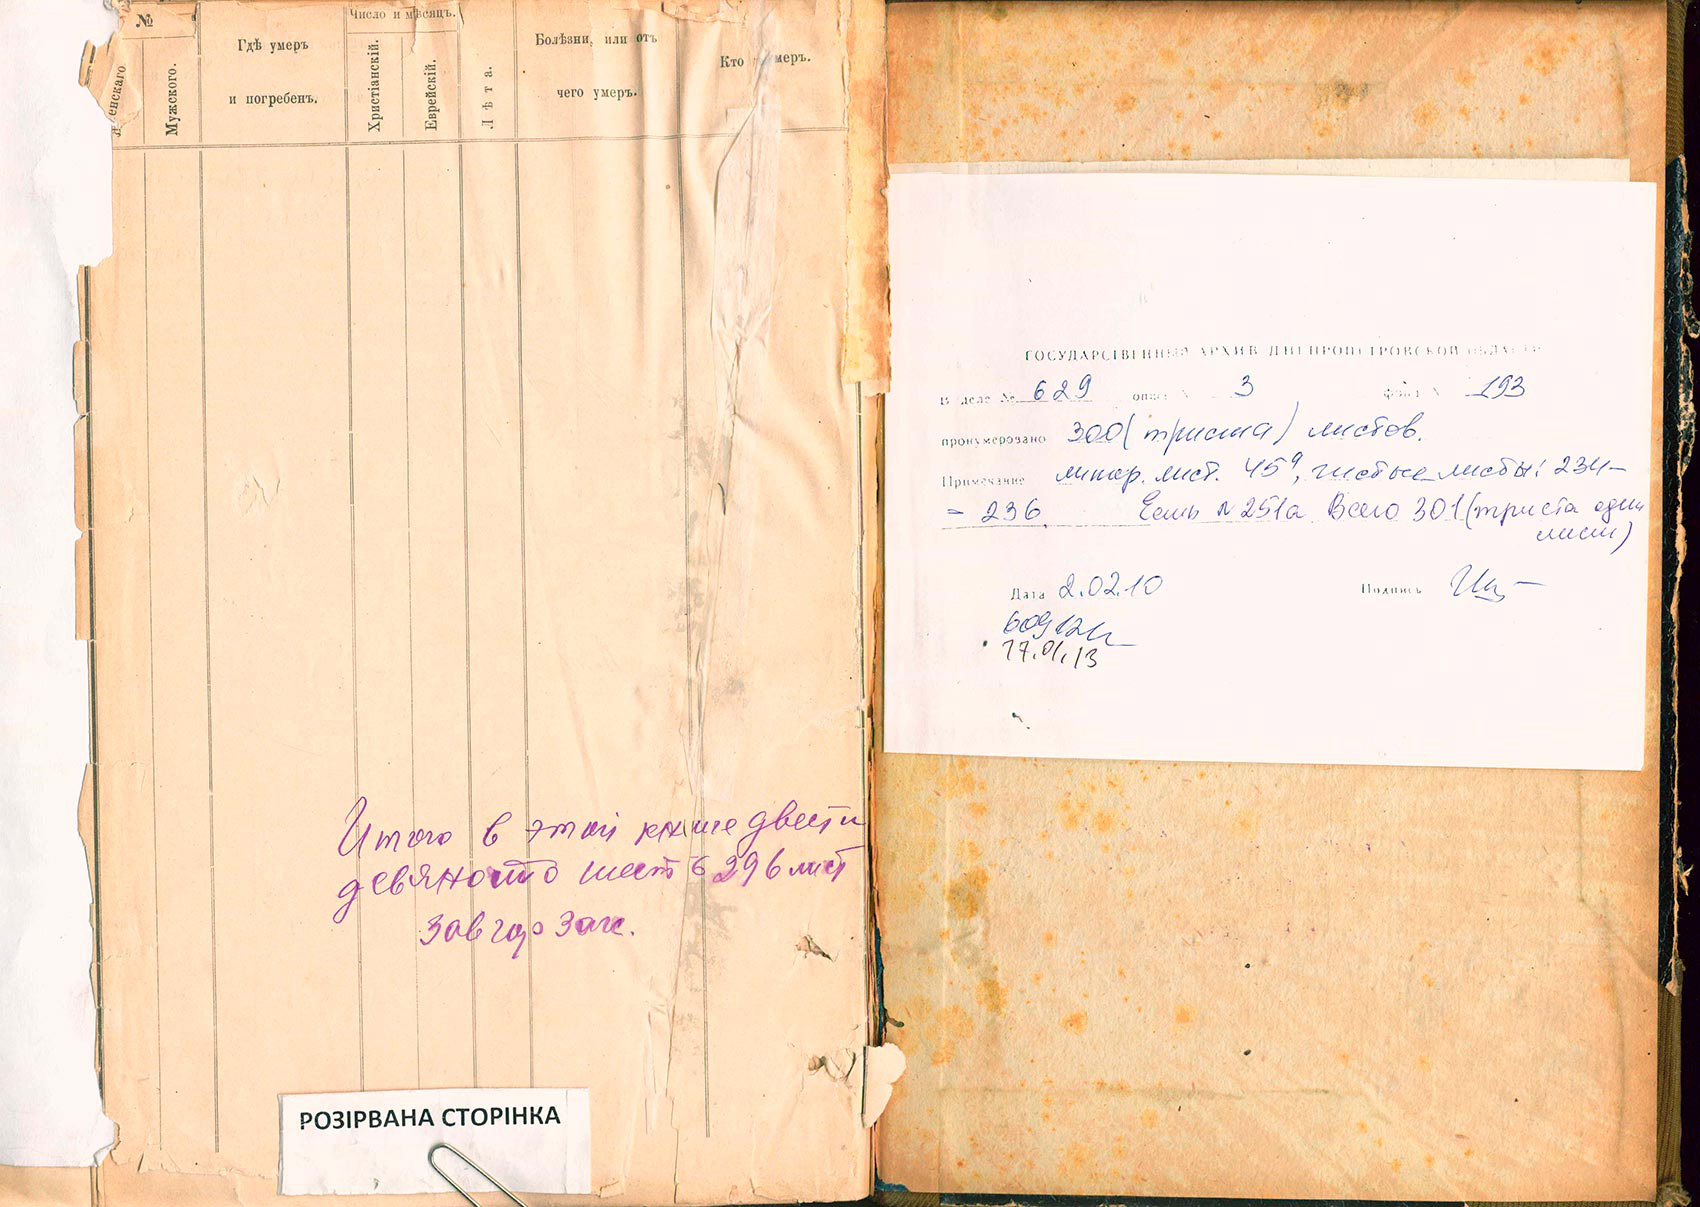 №
Женскаго
Мужского.
Гдѣ умеръ
и погребенъ.
Число и мѣсяцъ.
Христіанскій.
Еврейскій.
Лѣта.
Болѣзни, или отъ
чего умеръ.
Кто умеръ.
Итого в этой книге двести
девяносто шесть 296 лист
Зав гор Загс.
РОЗІРВАНА СТОРІНКА
ГОСУДАРСТВЕННЫЙ АРХИВ ДНЕПРОПЕТРОВСКОЙ ОБЛАСТИ
В деле № 629 опись № 3 фонд № 193
пронумеровано 300 (триста) листов.
Примечание литер. лист. 45а, чистые листы: 234-
- 236. Есть № 251а Всего 301 (триста один
лист)
Дата 2.02.10
Подпись
17.01.13